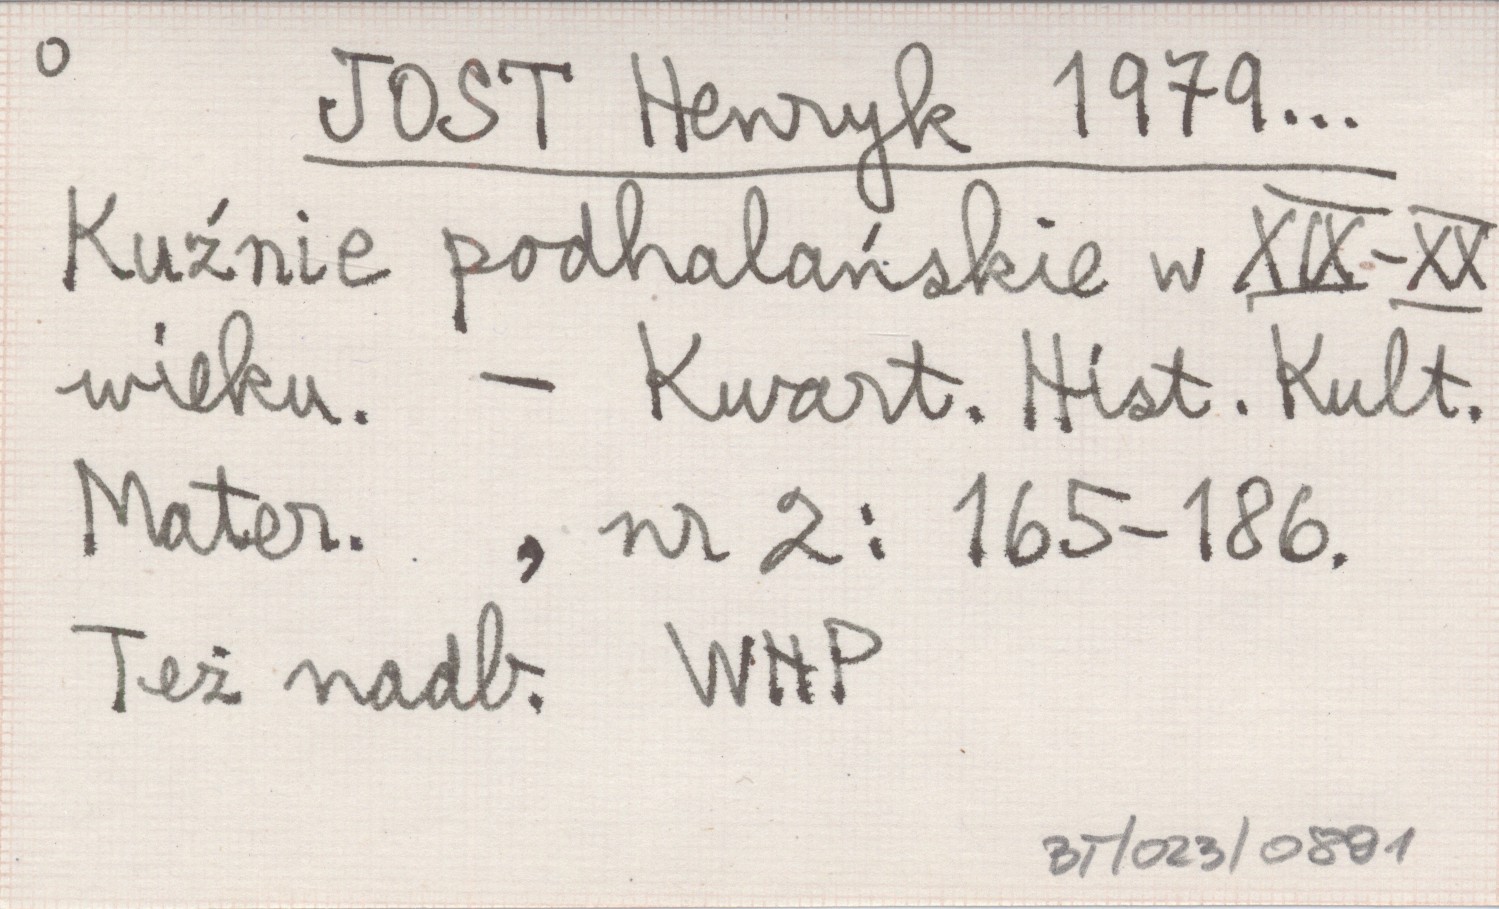 o
JOST Henryk 1979...
Kuźnie podhalańskie w XIX-XX
wieku. – Kwart. Hist. Kult.
Mater. , nr 2: 165-186.
Też nadb. WHP
BT/023/0891